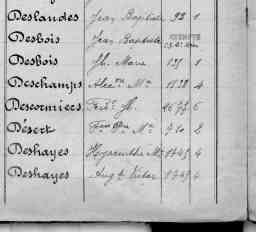 Deslandes Jean Baptiste 93 1
Desbois Jean Baptiste 1
Desbois Jh. Marie 1
Deschamps Alex.re M.ie 1138 4
Descormiers Fréd. Jh. 1677 6
Désert M.ie 910 2
Deshayes Hyacinthe M.ie 1745 4
Deshayes Aug.te Victor 1749 4